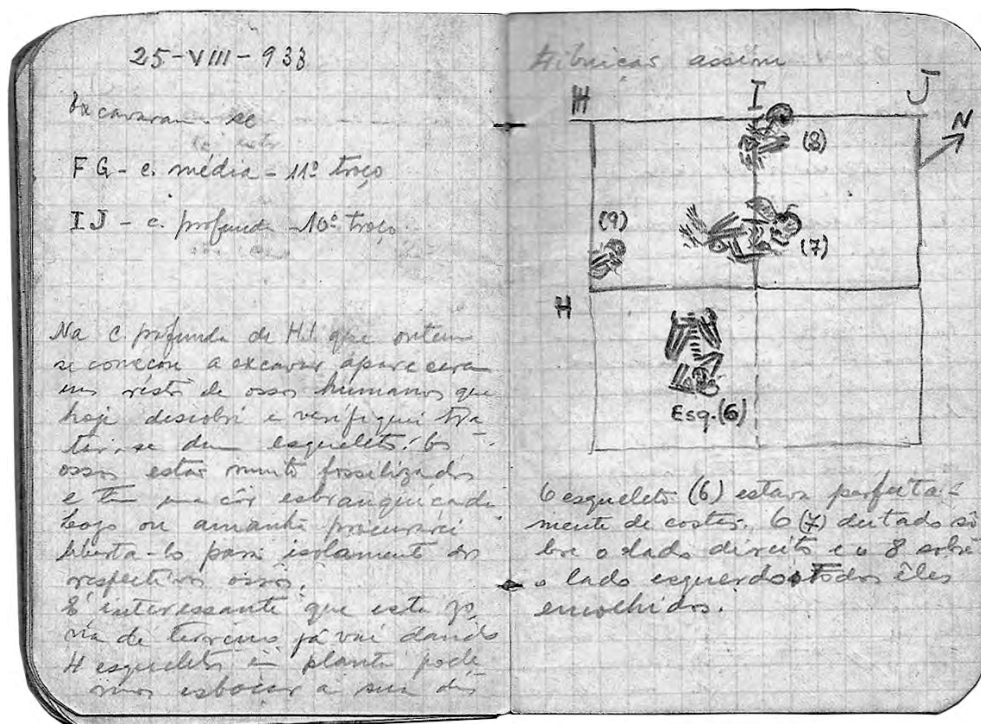 25-VIII-933
Excavaram-se
FG - c. média - 11º troço
IJ - c. profunda - 10º troço
Na c. profunda de HI que ontem
se começou a excavar aparecera
um resto de ossos humanos que
hoje descobri e verifiquei tra-
tar-se dum esqueleto. Os
ossos estão muito fossilizados
e têm uma côr esbranquiçada
Logo ou amanhã procurarei
liberta-lo para isolamento dos
respectivos ossos.
É interessante que esta zo-
na de terreno já vai dando
4 esqueletos e em planta pode-
mos esboçar a sua dis
assim
H I J
N
(8)
(9)
(7)
H
Esq. (6)
O esqueleto (6) estava perfeita-
mente de costas, O (7) deitado sô
bre o lado direito e o 8 sobre
o lado esquerdo. Todos êles
encolhidos.